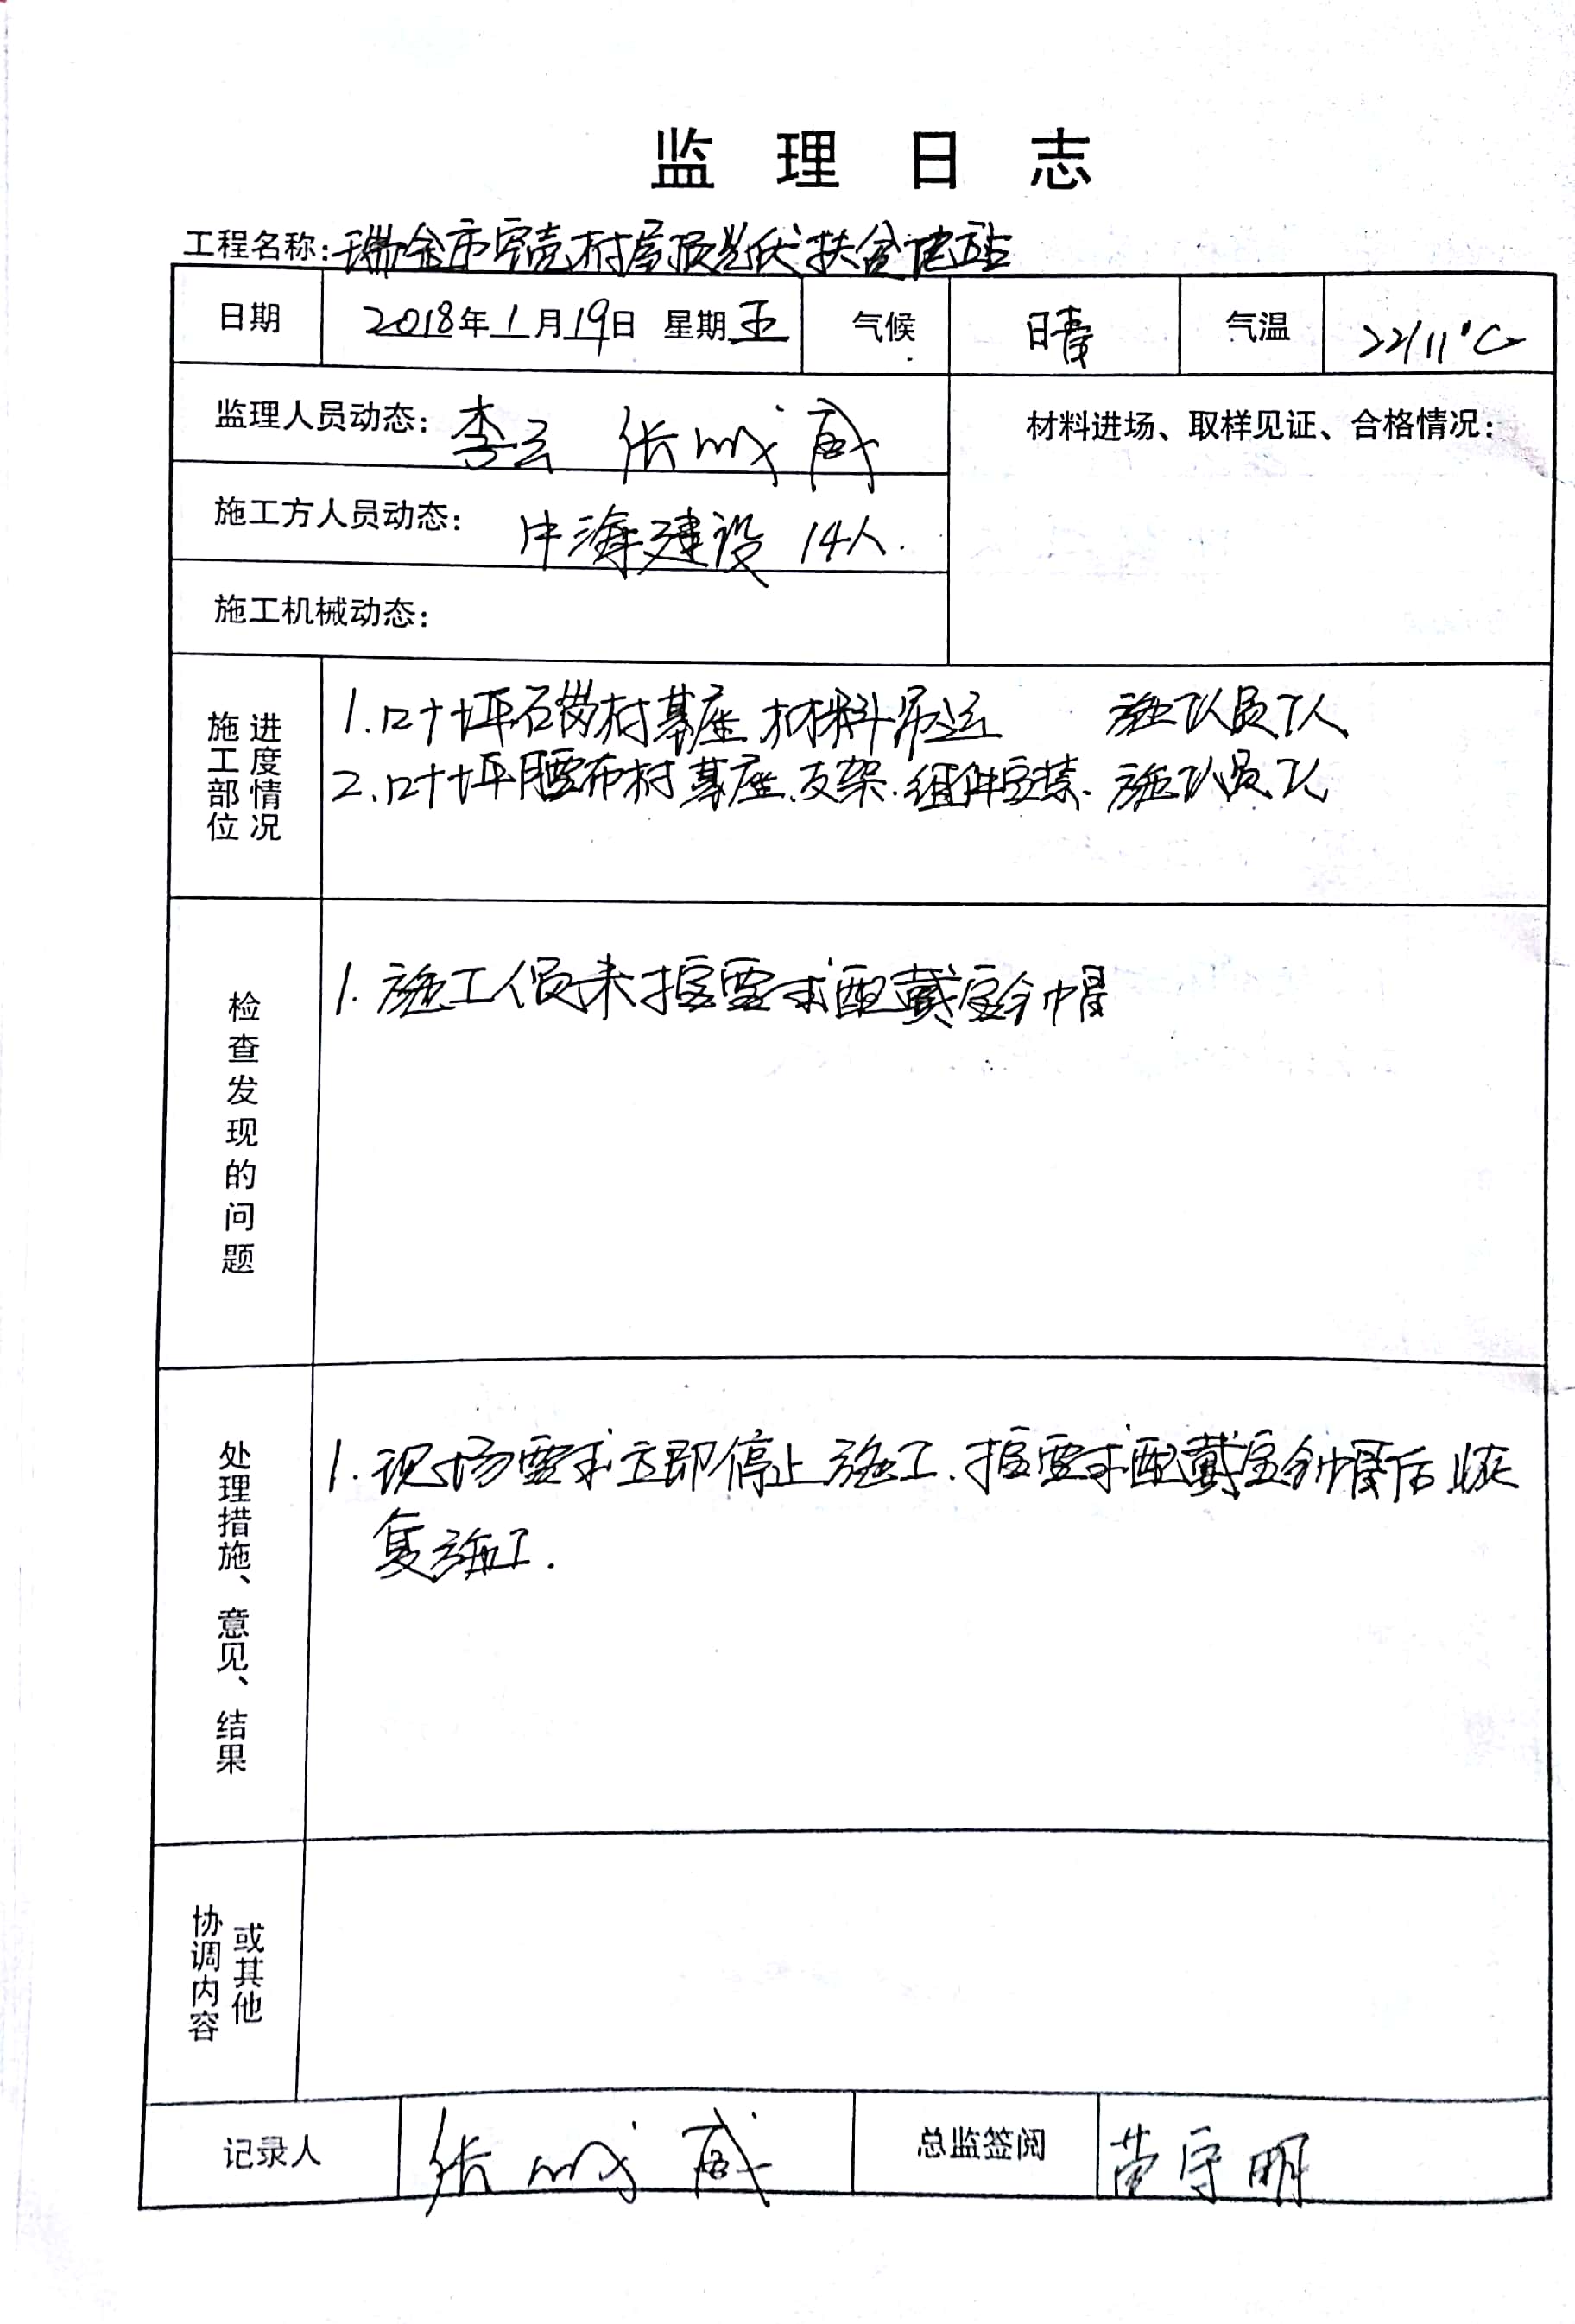 监理日志
工程名称:瑞金市空壳村屋顶光伏扶贫电站
日期 2018年1月19日 星期五 气候 晴 气温 22/11℃
监理人员动态: 李云 张 威
材料进场、取样见证、合格情况:
施工方人员动态: 中海建设 14人.
施工机械动态:
施工部位 进度情况
1.叶坪石岗村基座、材料吊运 施工队员7人
2.叶坪腰布村基座、支架、组件安装、施工队员7人
检查发现的问题
1.施工人员未按要求配戴安全帽
处理措施、意见、结果
1.现场要求立即停止施工、按要求配戴安全帽后恢
复施工.
协调内容 或其他
记录人 张 威 总监签阅 守明